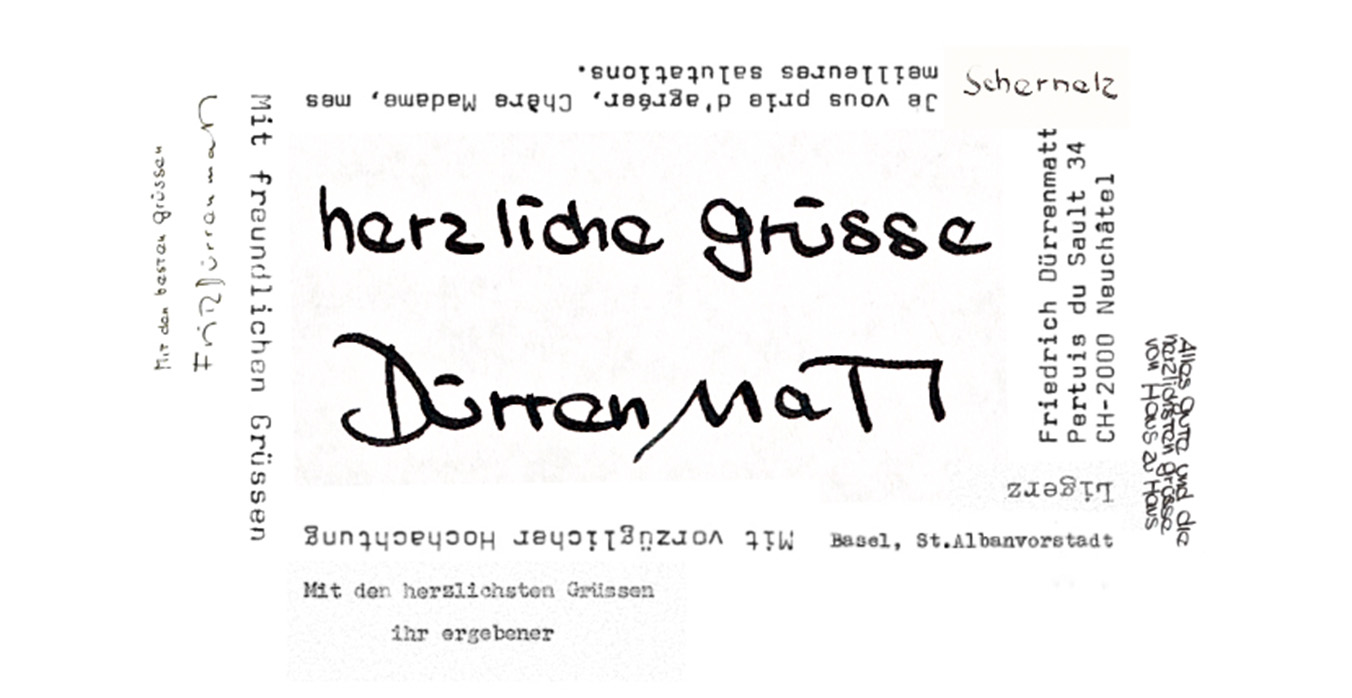 Je vous prie d'agréer, Chère Madame, mes
meilleures salutations.
Schernelz
Mit den besten grüssen
Fritz Dürrenmatt
Mit freundlichen Grüssen
herzliche grüsse
Dürrenmatt
Friedrich Dürrenmatt
Pertuis du Sault 34
CH-2000 Neuchâtel
Alles gute und die
herzlichsten grüsse
von Haus zu Haus
Ligerz
Mit vorzüglicher Hochachtung
Basel, St.Albanvorstadt
Mit den herzlichsten Grüssen
ihr ergebener